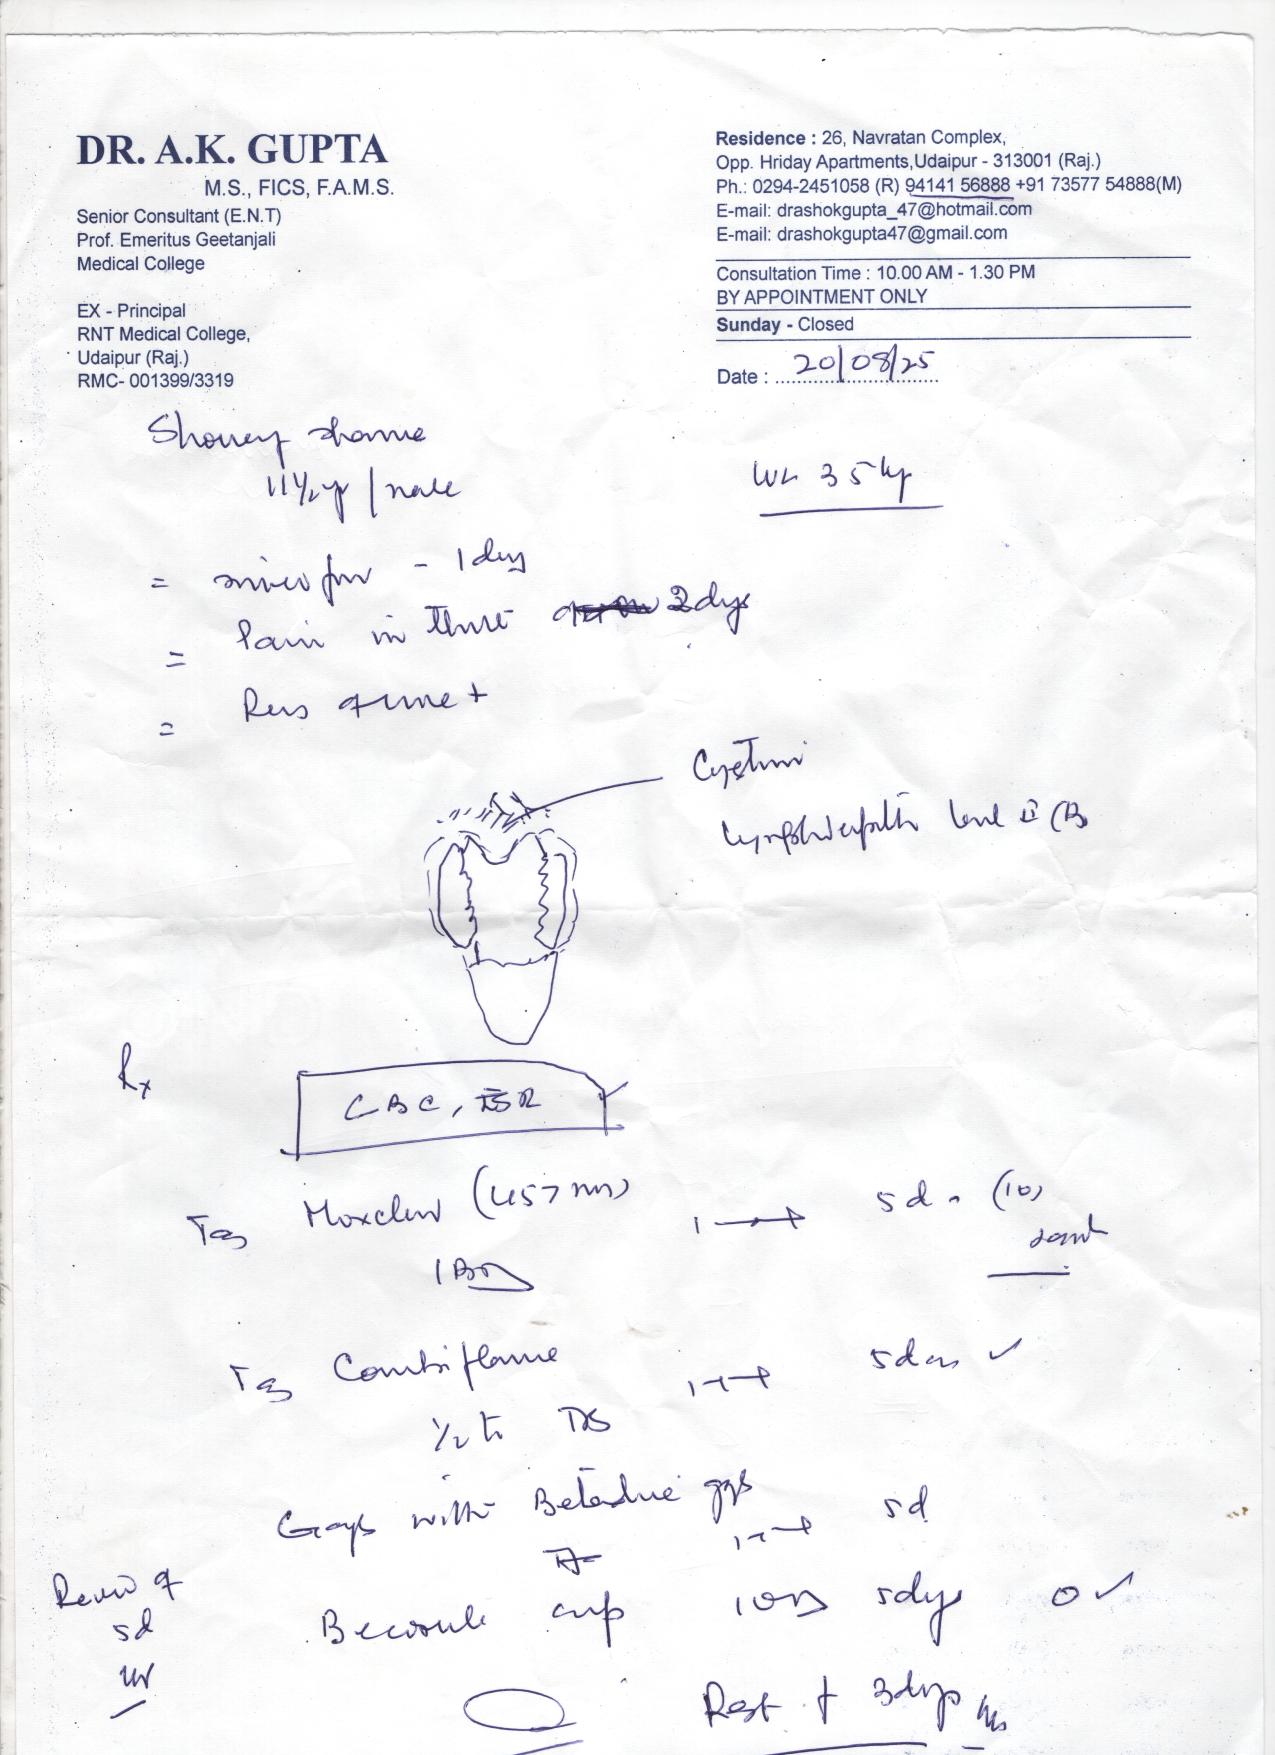 DR. A.K. GUPTA
M.S., FICS, F.A.M.S.
Senior Consultant (E.N.T)
Prof. Emeritus Geetanjali
Medical College
EX - Principal
RNT Medical College,
Udaipur (Raj.)
RMC- 001399/3319
Residence : 26, Navratan Complex,
Opp. Hriday Apartments,Udaipur - 313001 (Raj.)
Ph.: 0294-2451058 (R) 94141 56888 +91 73577 54888(M)
E-mail: drashokgupta_47@hotmail.com
E-mail: drashokgupta47@gmail.com
Consultation Time : 10.00 AM - 1.30 PM
BY APPOINTMENT ONLY
Sunday - Closed
Date : 20/08/25
11½y / male
Wt 35 kg
= - 1 day
= Pain in throat 2 days
=
level II (B)
Rx
CBC, ESR
Tab Moxclav (457 mg) 5d - (10)
1 BD
Tab Combiflame 5 days ✓
½ tab TDS
with Betadine 5d
Becosule cap 1 OD 5 days 0 ✓
5d
Rest f 3 days